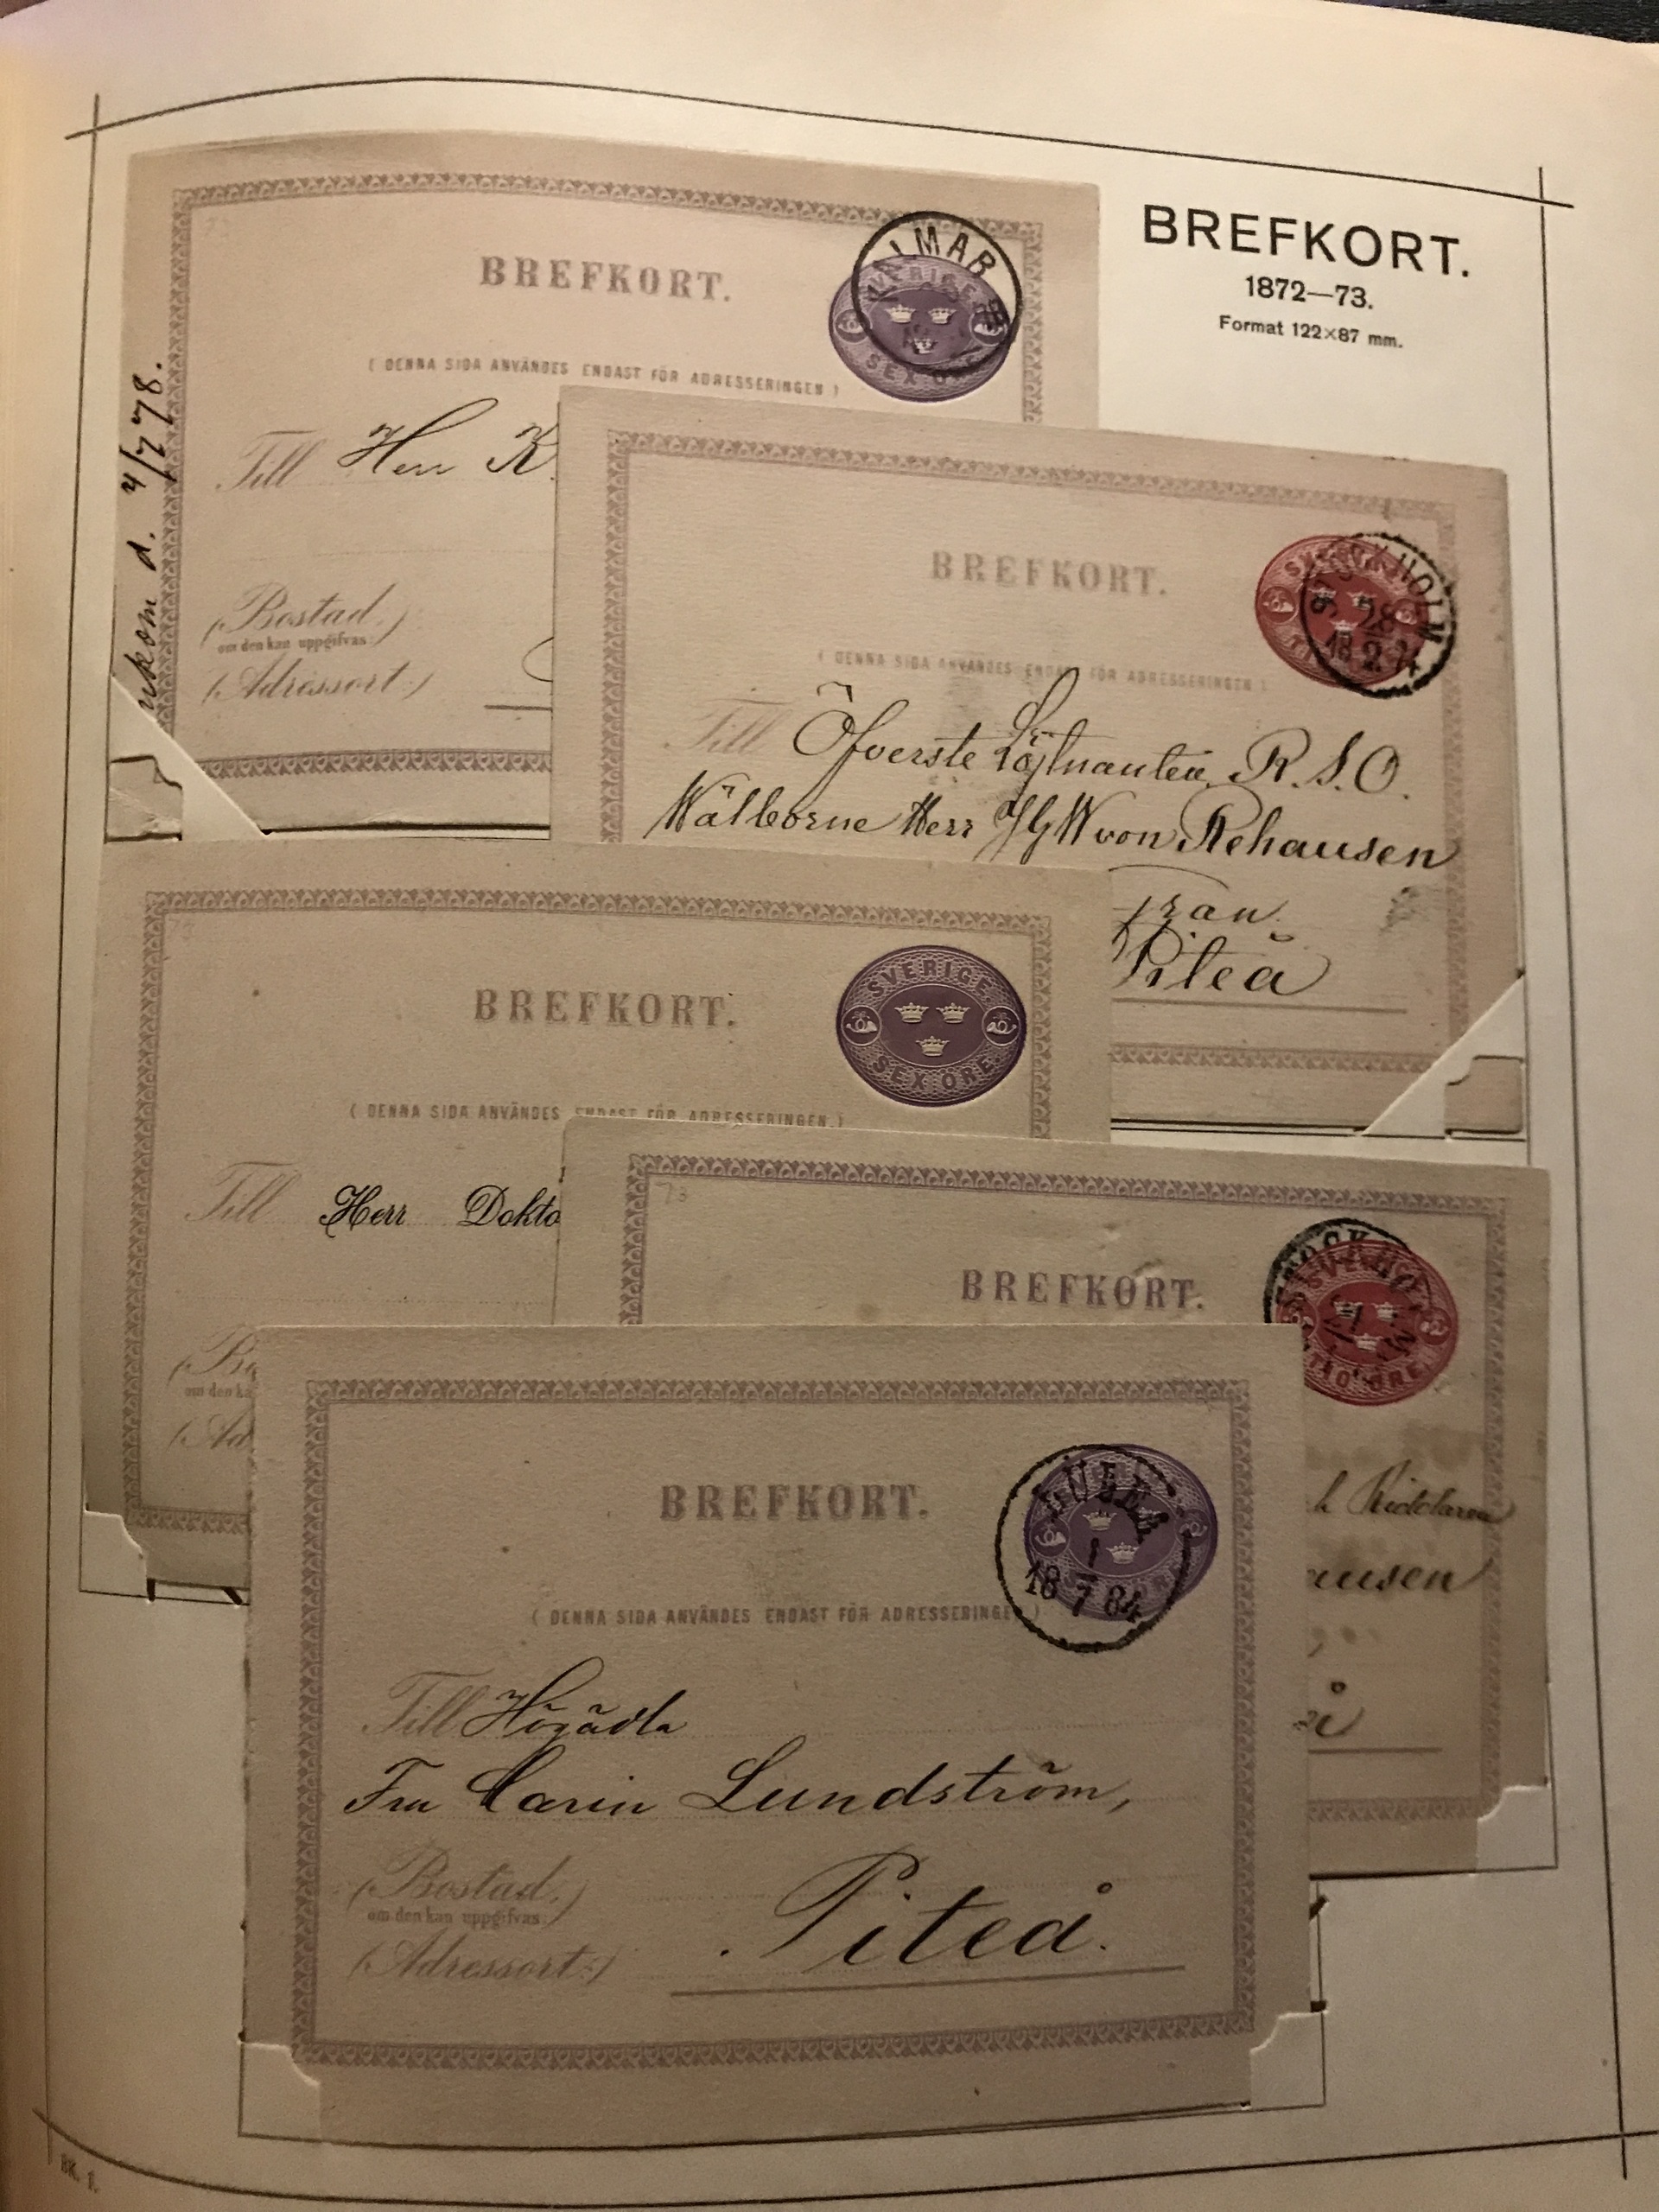 BREFKORT.
1872—73.
Format 122×87 mm.
BREFKORT.
KALMAR
SVERIGE
SEX ÖRE
( DENNA SIDA ANVÄNDES ENDAST FÖR ADRESSERINGEN )
Till Herr K.
(Bostad,)
om den kan uppgifvas.
(Adressort:)
d. 4/7 78.
BREFKORT.
STOCKHOLM
( DENNA SIDA ANVÄNDES ENDAST FÖR ADRESSERINGEN )
Till Öfverste Löjtnanten R.S.O.
Wälborne Herr von Rehausen
Piteå
73
BREFKORT.
SVERIGE
SEX ÖRE
( DENNA SIDA ANVÄNDES ENDAST FÖR ADRESSERINGEN.)
Till Herr Dokto
(Bo
om den ka
(Ad
73
BREFKORT.
STOCKHOLM
SVERIGE
TIO ÖRE
Riddaren
ausen
BREFKORT.
18 1/7 84
( DENNA SIDA ANVÄNDES ENDAST FÖR ADRESSERINGEN )
Till Högädla
Fru Carin Lundström,
(Bostad,)
om den kan uppgifvas.
(Adressort:)
Piteå.
BK. 1.